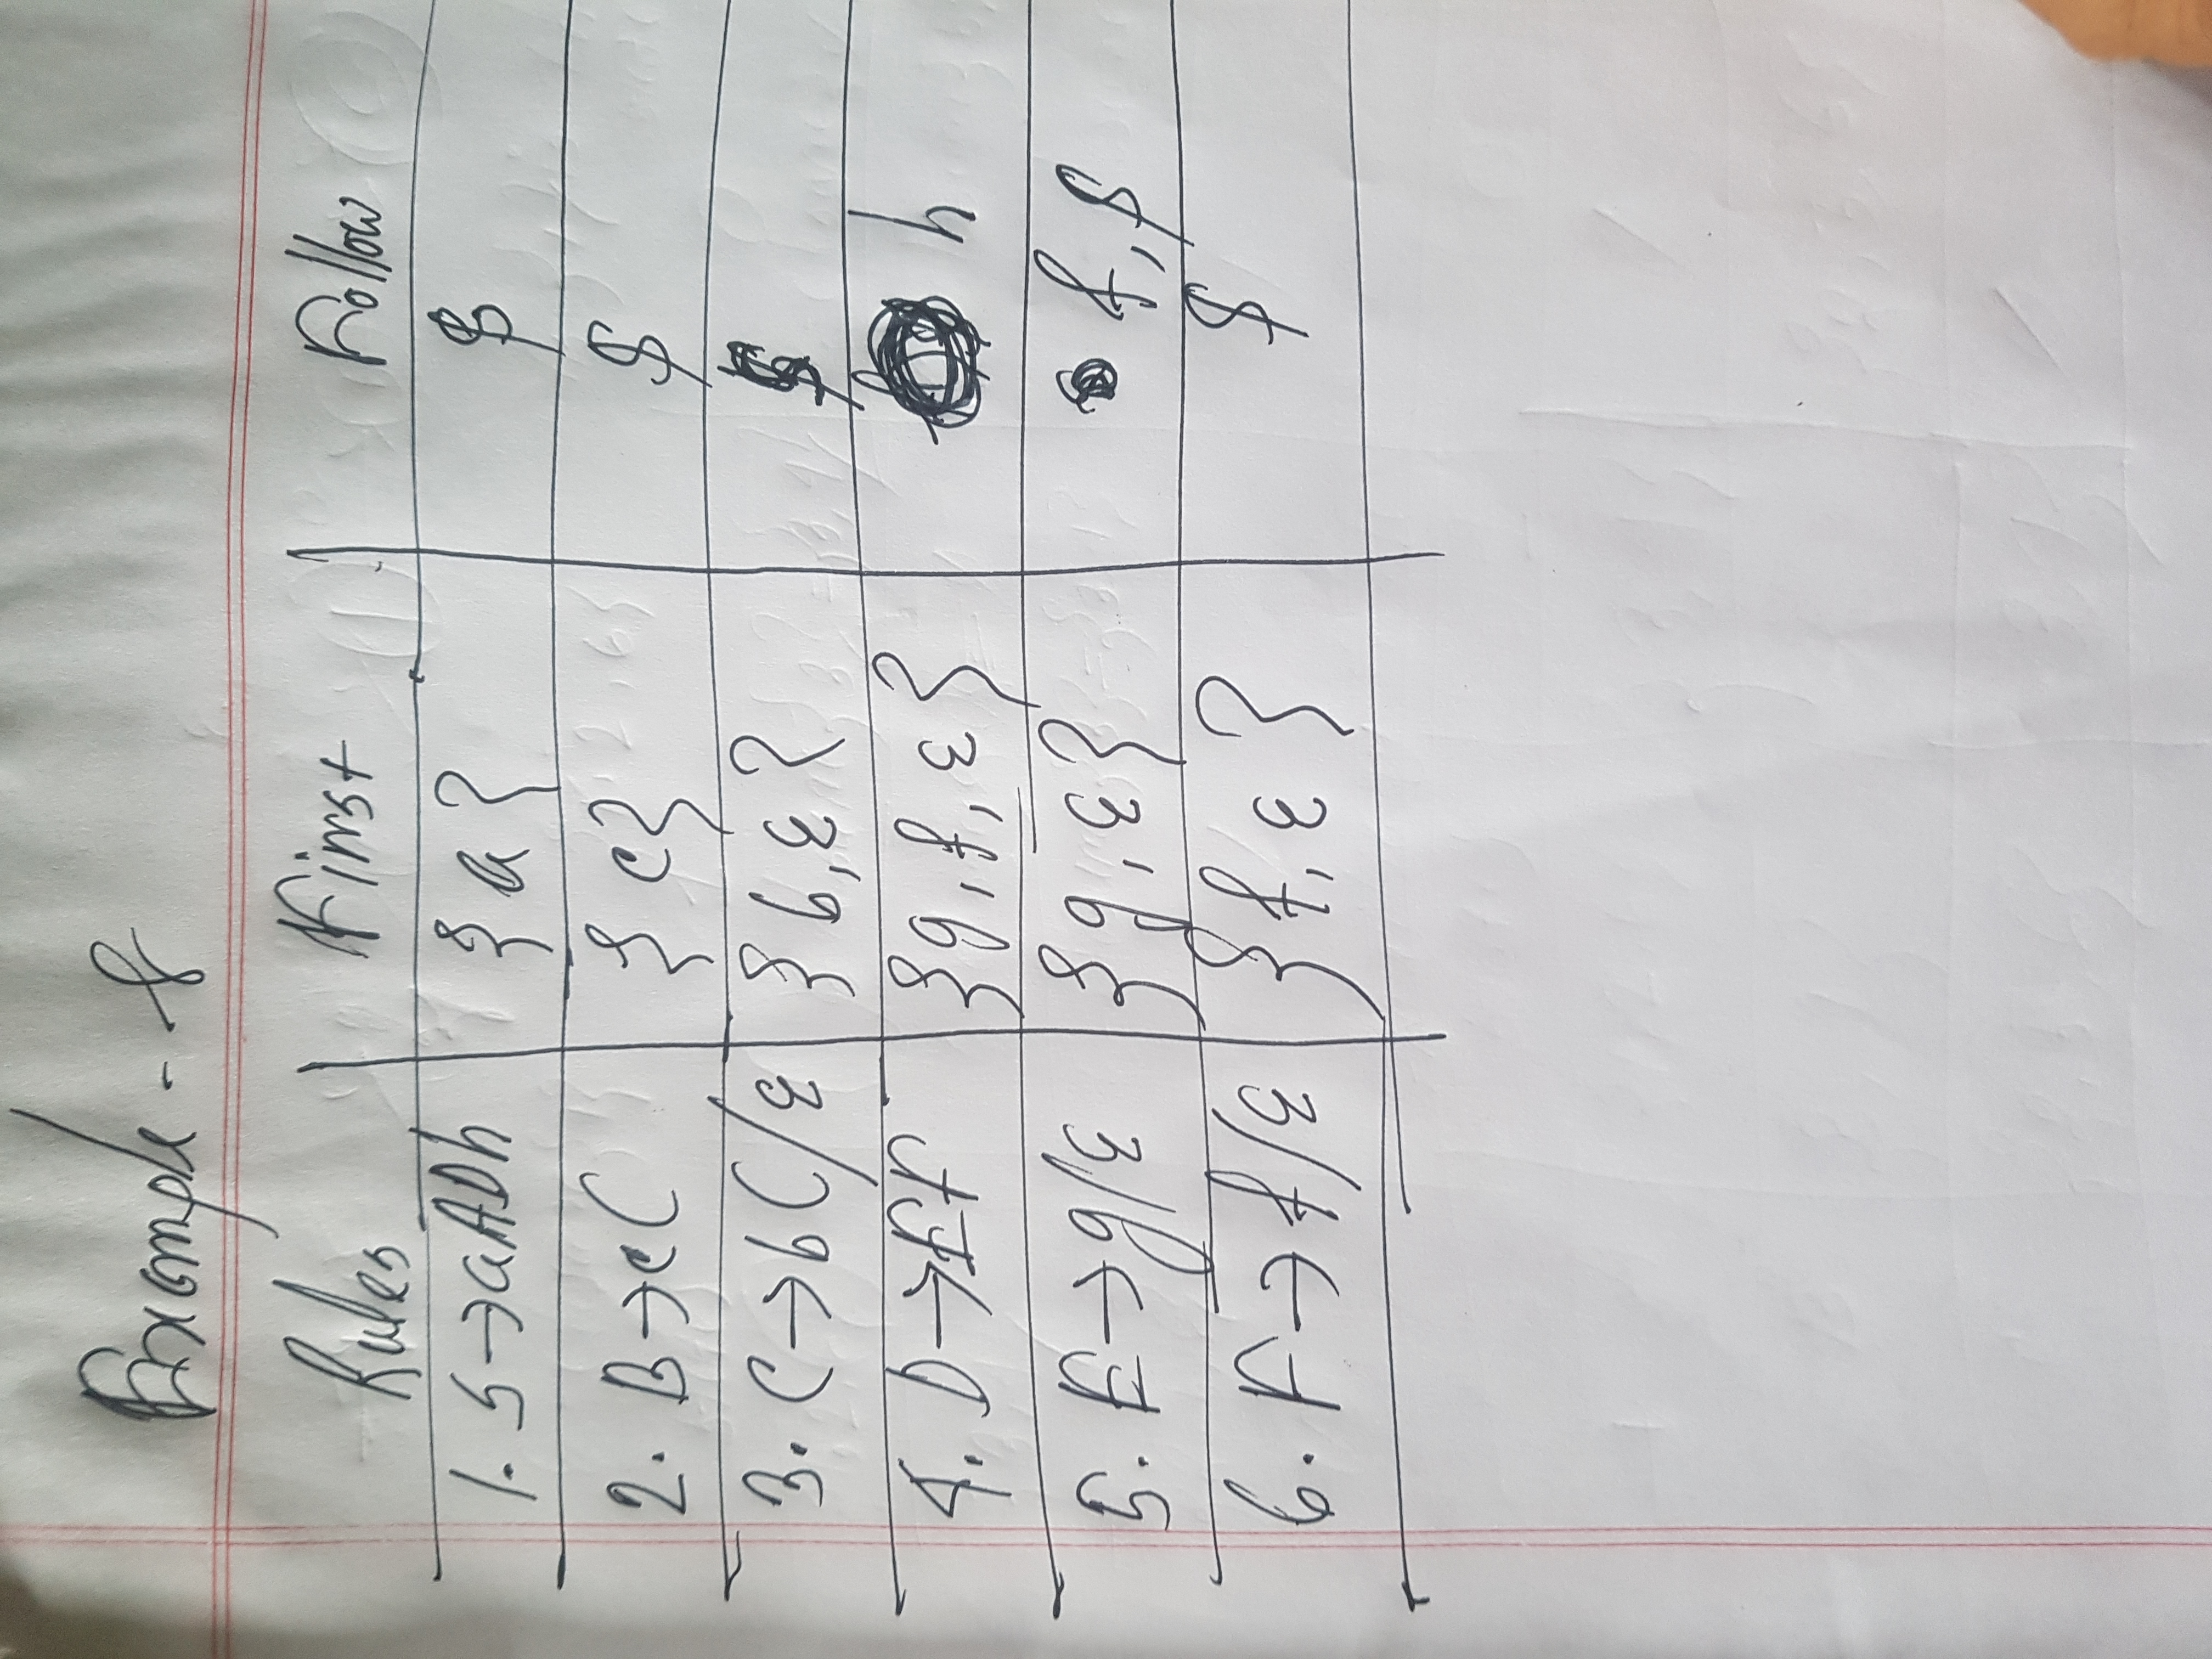 Example - 8
Rules First Follow
1. S→aADh {a} $
2. B→cC {c} $
3. C→bC/ε {b,ε} $
4. D→EF {g,f,ε} h
5. E→g/ε {g,ε} f,$
6. F→f/ε {f,ε} $